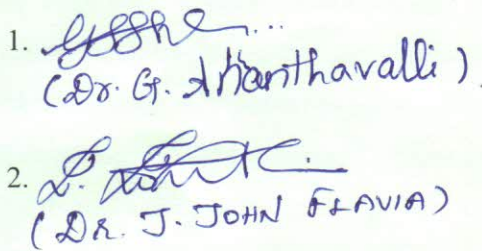 1.
(Dr. G. Ananthavalli)
2.
(DR. J. JOHN FLAVIA)